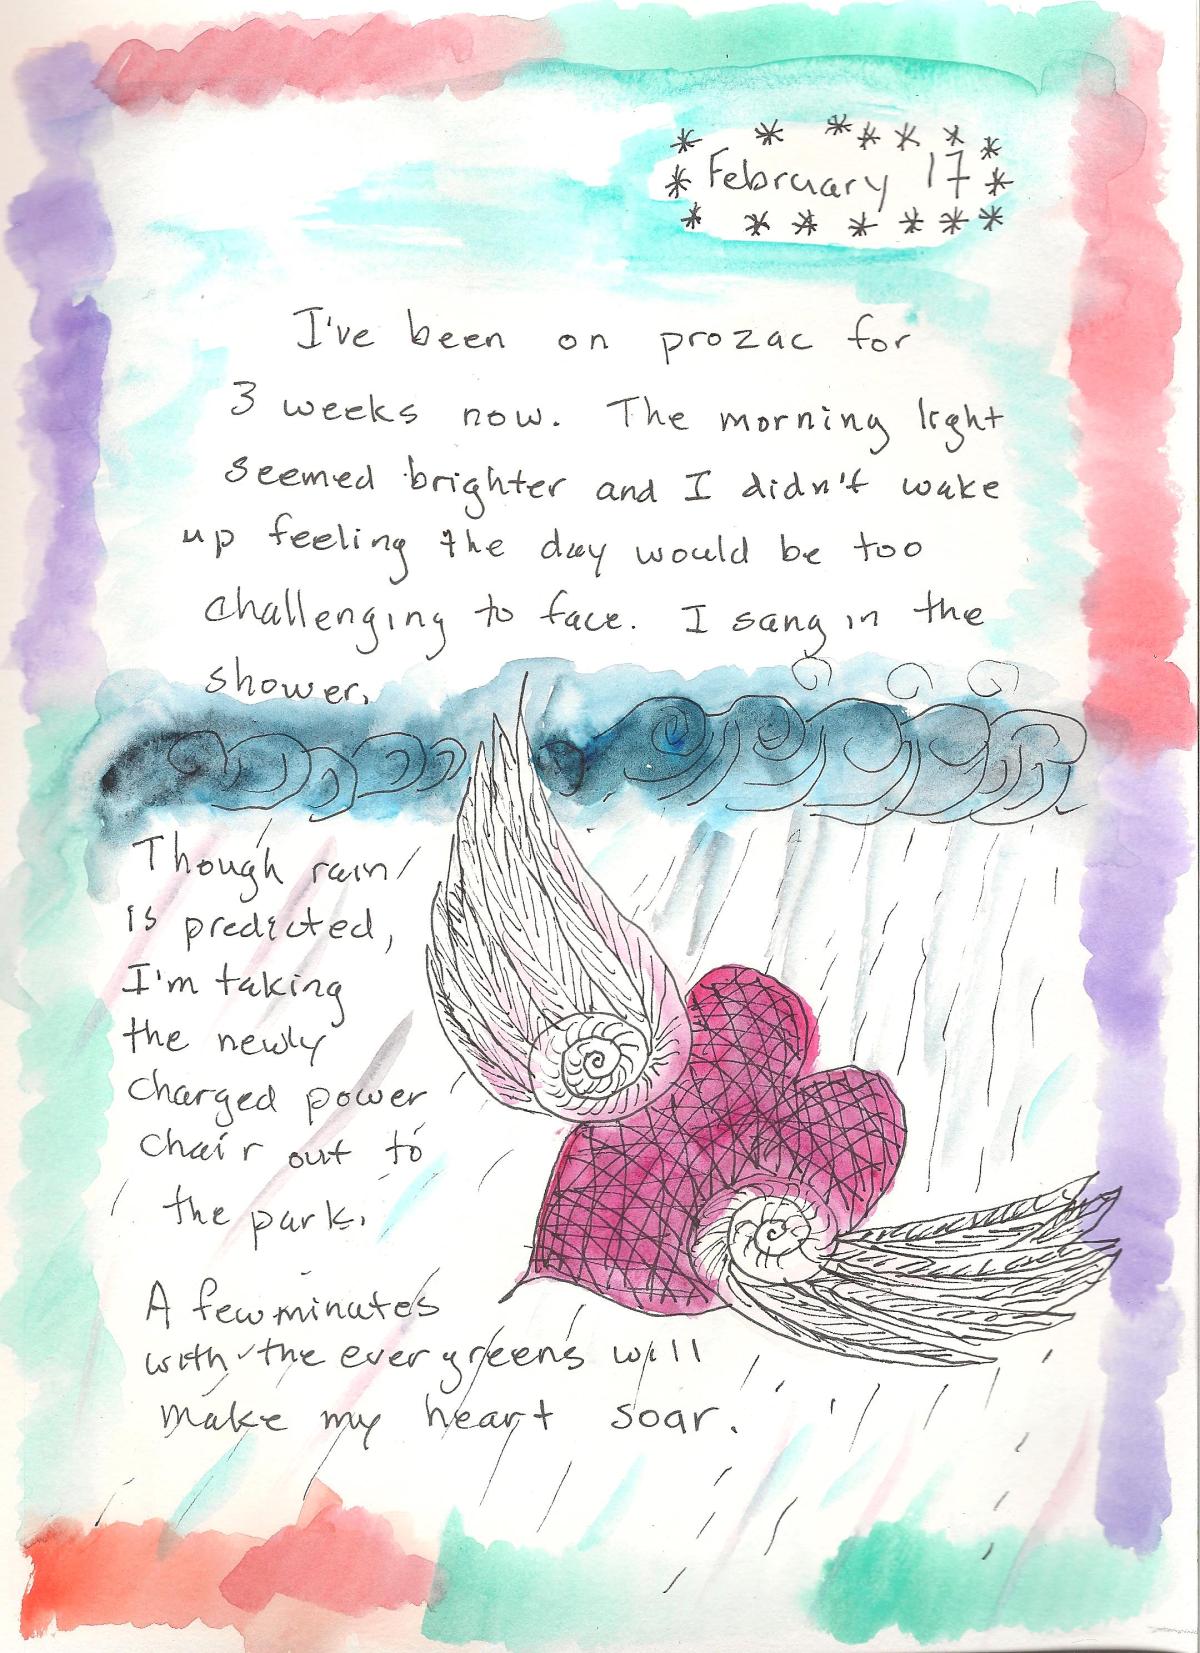 February 17
I've been on prozac for
3 weeks now. The morning light
seemed brighter and I didn't wake
up feeling the day would be too
challenging to face. I sang in the
shower.
Though rain
is predicted,
I'm taking
the newly
charged power
chair out to
the park.
A few minutes
with the evergreens will
make my heart soar.